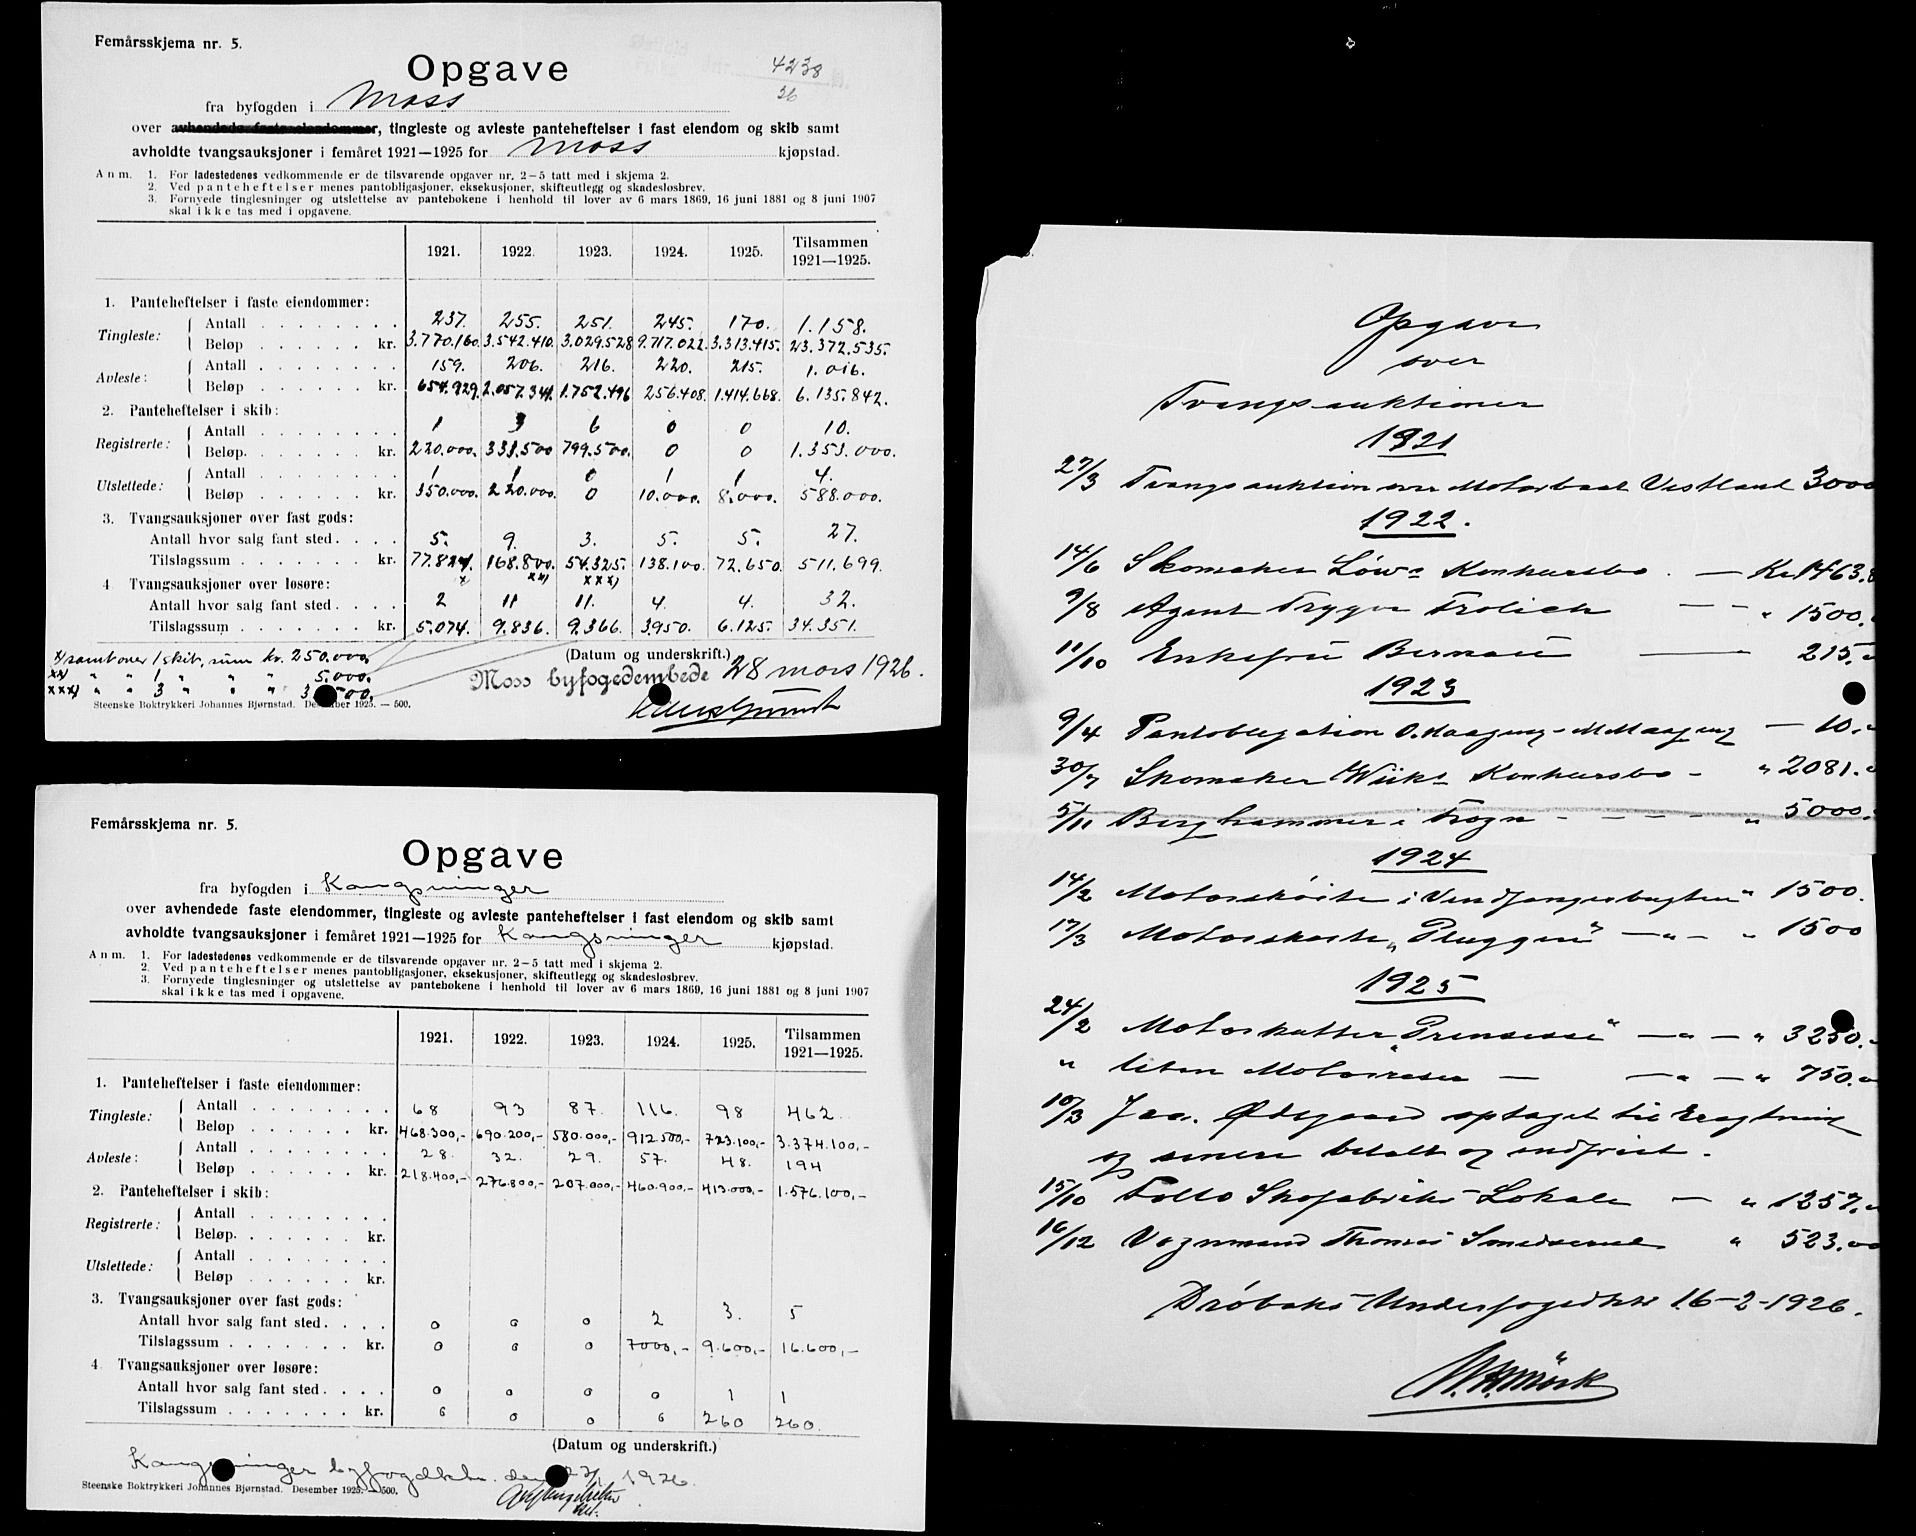 Femårsskjema nr. 5.
Opgave
4238
26
fra byfogden i Moss
over avhendede faste eiendommer, tingleste og avleste panteheftelser i fast eiendom og skib samt
avholdte tvangsauksjoner i femåret 1921—1925 for Moss kjøpstad.
Anm. 1. For ladestedenes vedkommende er de tilsvarende opgaver nr. 2—5 tatt med i skjema 2.
2. Ved panteheftelser menes pantobligasjoner, eksekusjoner, skifteutlegg og skadesløsbrev.
3. Fornyede tinglesninger og utslettelse av pantebøkene i henhold til lover av 6 mars 1869, 16 juni 1881 og 8 juni 1907
skal ikke tas med i opgavene.
1921. 1922. 1923. 1924. 1925. Tilsammen 1921—1925.
1. Panteheftelser i faste eiendommer:
Tingleste: Antall 237. 255. 251. 245. 170. 1.158.
Beløp kr. 3.770.160. 3.542.410. 3.029.528 9.717.022. 3.313.415. 23.372.535.
Avleste: Antall 159. 206. 216. 220. 215. 1.016.
Beløp kr. 654.929. 2.057.341. 1.752.496 256.408. 1.414.668. 6.135.842.
2. Panteheftelser i skib:
Registrerte: Antall 1 3 6 0 0 10.
Beløp. kr. 220.000. 333.500 799.500. 0 0 1.353.000.
Utslettede: Antall 1 1 0 1 1 4.
Beløp kr. 350.000. 220.000. 0 10.000. 8.000. 588.000.
3. Tvangsauksjoner over fast gods:
Antall hvor salg fant sted. 5. 9. 3. 5. 5. 27.
Tilslagssum kr. 77.824. 168.800. 54.325. 138.100. 72.650. 511.699.
x) xx) xxx)
4 Tvangsauksjoner over løsøre:
Antall hvor salg fant sted. 2 11 11. 4. 4. 32.
Tilslagssum kr. 5.074. 9.836. 9.366. 3.950. 6.125. 34.351.
x) samt over 1 skib, sum kr. 250.000.
xx) " " 1 " " " 5.000.
xxx) " " 3 " " " 3 500.
(Datum og underskrift.)
Moss byfogedembede 28 mars 1926.
Steenske Boktrykkeri Johannes Bjørnstad. Desember 1925. — 500.
Femårsskjema nr. 5.
Opgave
fra byfogden i Kongsvinger
over avhendede faste eiendommer, tingleste og avleste panteheftelser i fast eiendom og skib samt
avholdte tvangsauksjoner i femåret 1921—1925 for Kongsvinger kjøpstad.
Anm. 1. For ladestedenes vedkommende er de tilsvarende opgaver nr. 2—5 tatt med i skjema 2.
2. Ved panteheftelser menes pantobligasjoner, eksekusjoner, skifteutlegg og skadesløsbrev.
3. Fornyede tinglesninger og utslettelse av pantebøkene i henhold til lover av 6 mars 1869, 16 juni 1881 og 8 juni 1907
skal ikke tas med i opgavene.
1921. 1922. 1923. 1924. 1925. Tilsammen 1921—1925.
1. Panteheftelser i faste eiendommer:
Tingleste: Antall 68 93 87. 116. 98 462
Beløp kr. 468.300,- 690.200,- 580.000,- 912.500,- 723.100,- 3.374.100,-
Avleste: Antall 28. 32. 29. 57. 48. 194
Beløp kr. 218.400,- 276.800,- 207.000,- 460.900,- 413.000,- 1.576.100,-
2. Panteheftelser i skib:
Registrerte: Antall
Beløp. kr.
Utslettede: Antall
Beløp kr.
3. Tvangsauksjoner over fast gods:
Antall hvor salg fant sted. 0 0 0 2 3. 5
Tilslagssum kr. 0 0 0 7000,- 9.600,- 16.600,-
4 Tvangsauksjoner over løsøre:
Antall hvor salg fant sted. 0 0 0 0 1 1
Tilslagssum kr. 0 0 0 0 260 260.
(Datum og underskrift.)
Kongsvinger byfogdktr. den 1926.
Steenske Boktrykkeri Johannes Bjørnstad. Desember 1925. — 500.
Opgave
over
Tvangsauktioner
1921
27/3 Tvangsauktion over Motorbaat Vestland 3000
1922.
14/6 Skomaker Löws Konkursbo. — Kr 1463.8
9/8 Agent Trygve Frölich — — " 1500.
11/10 Enkefru Bernau — 215.
1923
9/4 Pantobligation O. Haagens - M. Haagens — 10.
30/7 Skomaker Wiiks Konkursbo - " 2081.
5/11 Berghammer i Frogn - - - - - " 5000.
1924
14/2 Motorskóite i Vindfangerbugten " 1500.
17/3 Motorskøite "Pluggen" — " — " 1500
1925
24/2 Motorkutter "Prinsesse" — " — " 3250.
" liten Motorsnekke — — " — " 750.
10/3 Joa. Ødegaard optaget til Eragtning
og senere betalt og indfriet.
15/10 Follo Skofabriks Lokale — " 1257.
16/12 Vognmand Thomas Smedsrud " 523.00
Dröbaks Underfogedktr 16-2-1926.